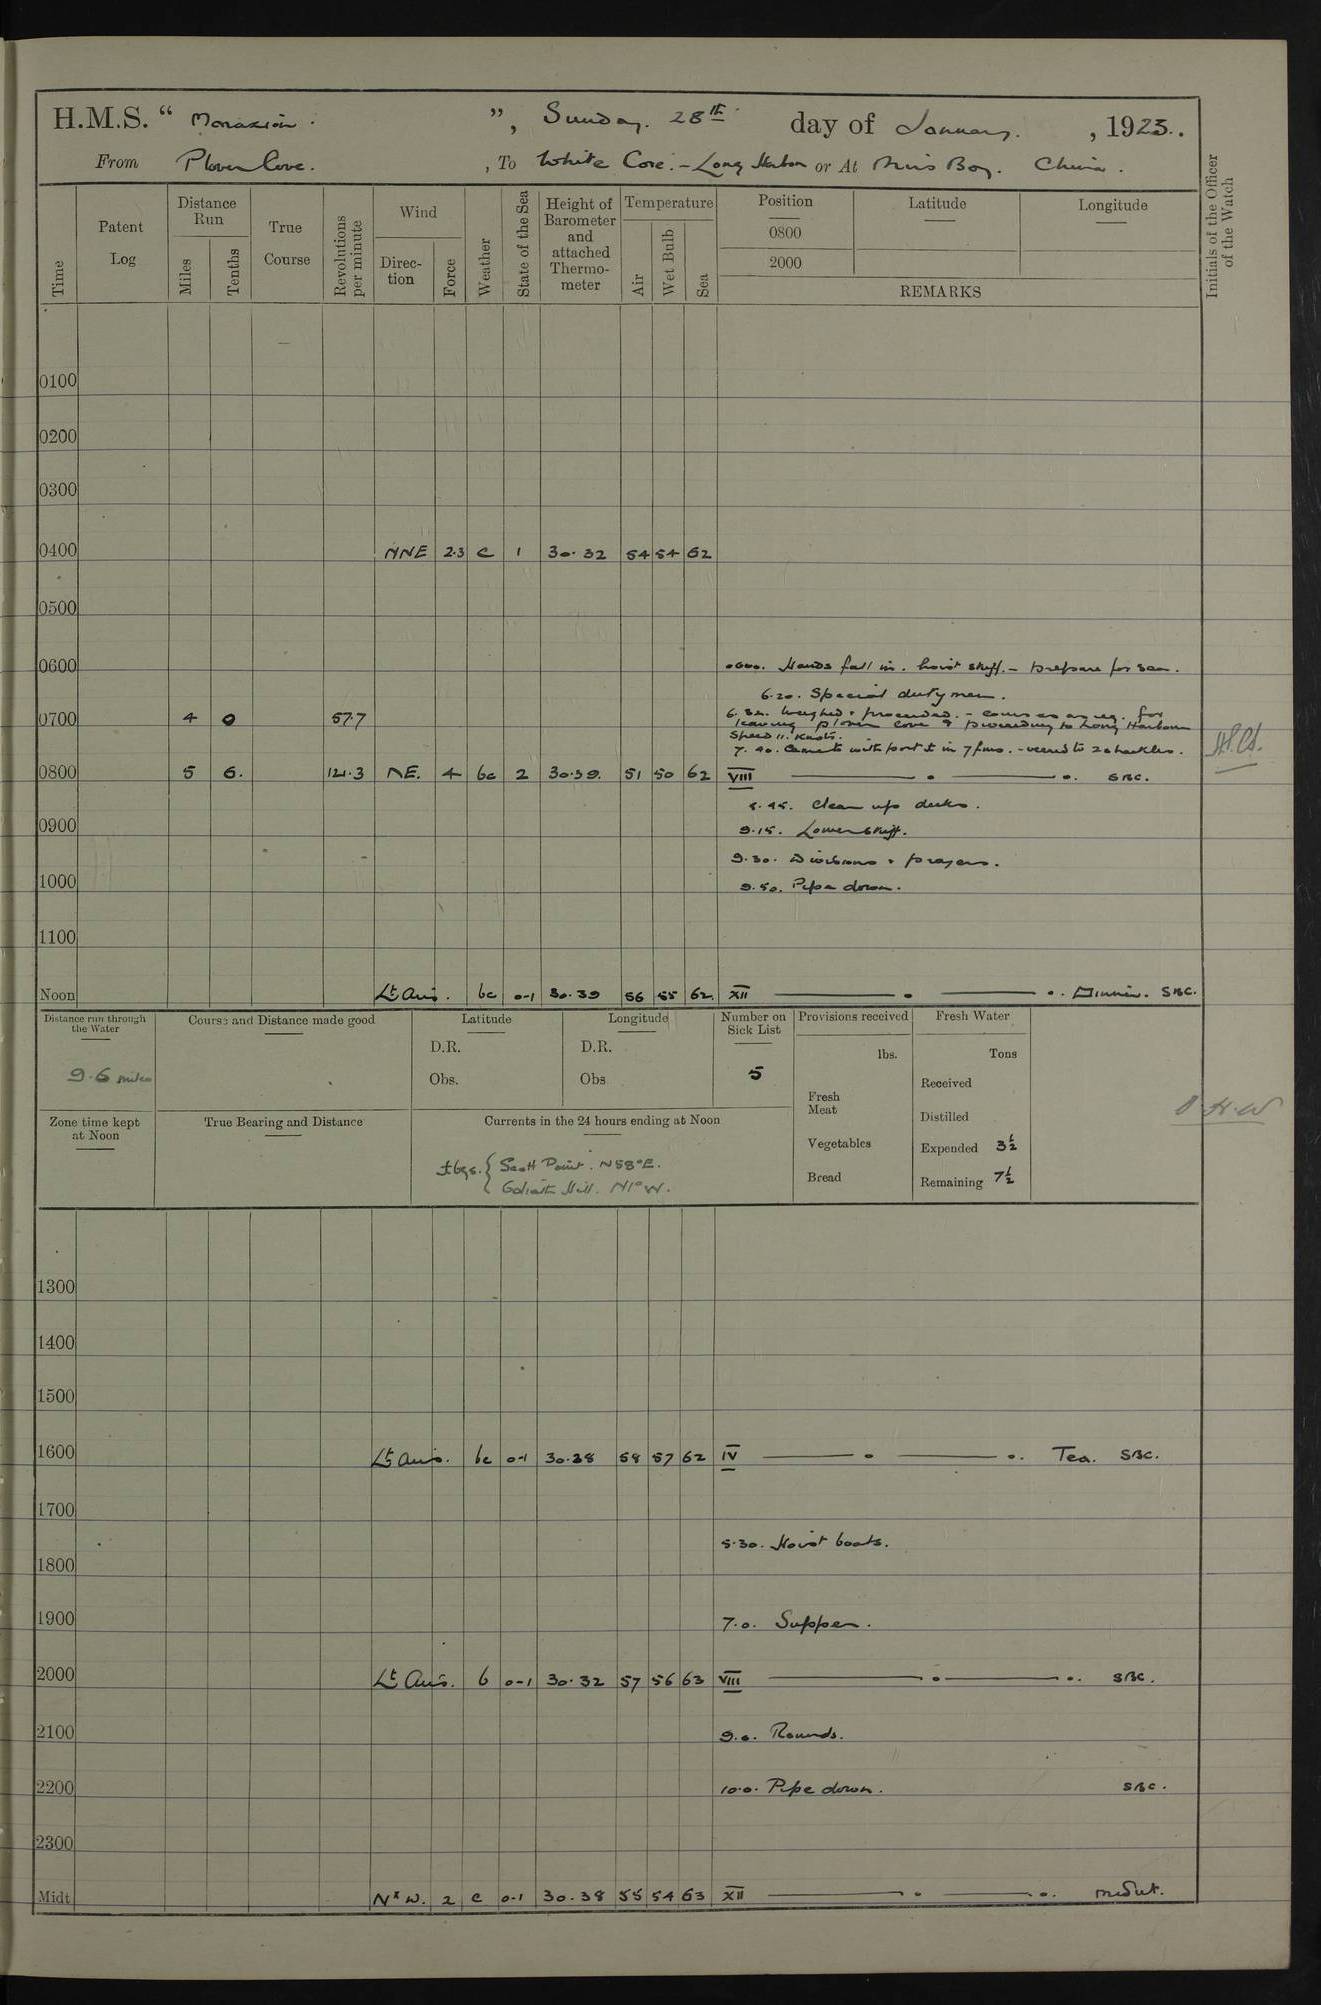 H.M.S. “ Marazion . ”, Sunday. 28th day of January. , 1923..
From Plover Cove. , To White Cove. - Long Harbour or At Mirs Bay. China .
Time Patent Log Distance Run Miles Tenths True Course Revolutions per minute Wind Direc-tion Force Weather State of the Sea Height of Barometer and attached Thermo-meter Temperature Air Wet Bulb Sea Position 0800 2000 Latitude Longitude REMARKS Initials of the Officer of the Watch
0100
0200
0300
0400 NNE 2.3 c 1 30.32 54 54 62
0500
0600 0600. Hands fall in. hoist skiff. - prepare for sea.
6.20. Special duty men.
0700 4 0 57.7 6.32. Weighed & proceeded. - courses as req. for
leaving Plover Cove & proceeding to Long Harbour
Speed 11. knots.
7.40. Came to with port ⚓ in 7 fms. - veered to 2 shackles.
0800 5 6. 121.3 NE. 4 bc 2 30.39. 51 50 62 VIII SBC.
8.45. Clean up decks.
0900 9.15. Lower skiff.
9.30. Divisions & prayers.
1000 9.50. Pipe down.
1100
Noon Lt Airs. bc 0-1 30.39 56 55 62. XII Dinner. SBC.
Distance run through the Water
9.6 miles
Course and Distance made good
Latitude
D.R.
Obs.
Longitude
D.R.
Obs
Number on Sick List
5
Provisions received
lbs.
Fresh Meat
Vegetables
Bread
Fresh Water
Tons
Received
Distilled
Expended 3½
Remaining 7½
Zone time kept at Noon
True Bearing and Distance
Currents in the 24 hours ending at Noon
⚓ bgs. { Scott Point. N58°E.
Goliath Hill. N1°W.
1300
1400
1500
1600 Lt Airs. bc 0-1 30.28 58 57 62 IV Tea. SBC.
1700
5.30. Hoist boats.
1800
1900 7.0. Supper.
2000 Lt Airs. b 0-1 30.32 57 56 63 VIII SBC.
2100 9.0. Rounds.
2200 10.0. Pipe down. SBC.
2300
Midt NxW. 2 c 0-1 30.38 55 54 63 XII